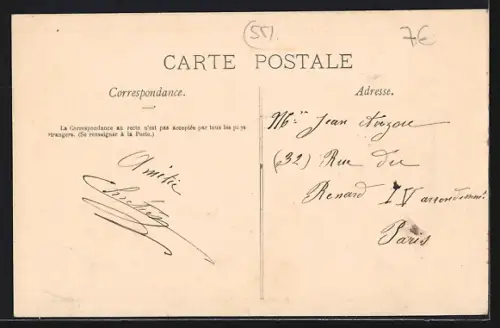 (55)
7€
CARTE POSTALE
Correspondance.
Adresse.
La Correspondance au recto n'est pas acceptée par tous les pays
étrangers. (Se renseigner à la Poste.)
Amitié
Mr Jean
(32) Rue du
Renard IV arrondissemt
Paris